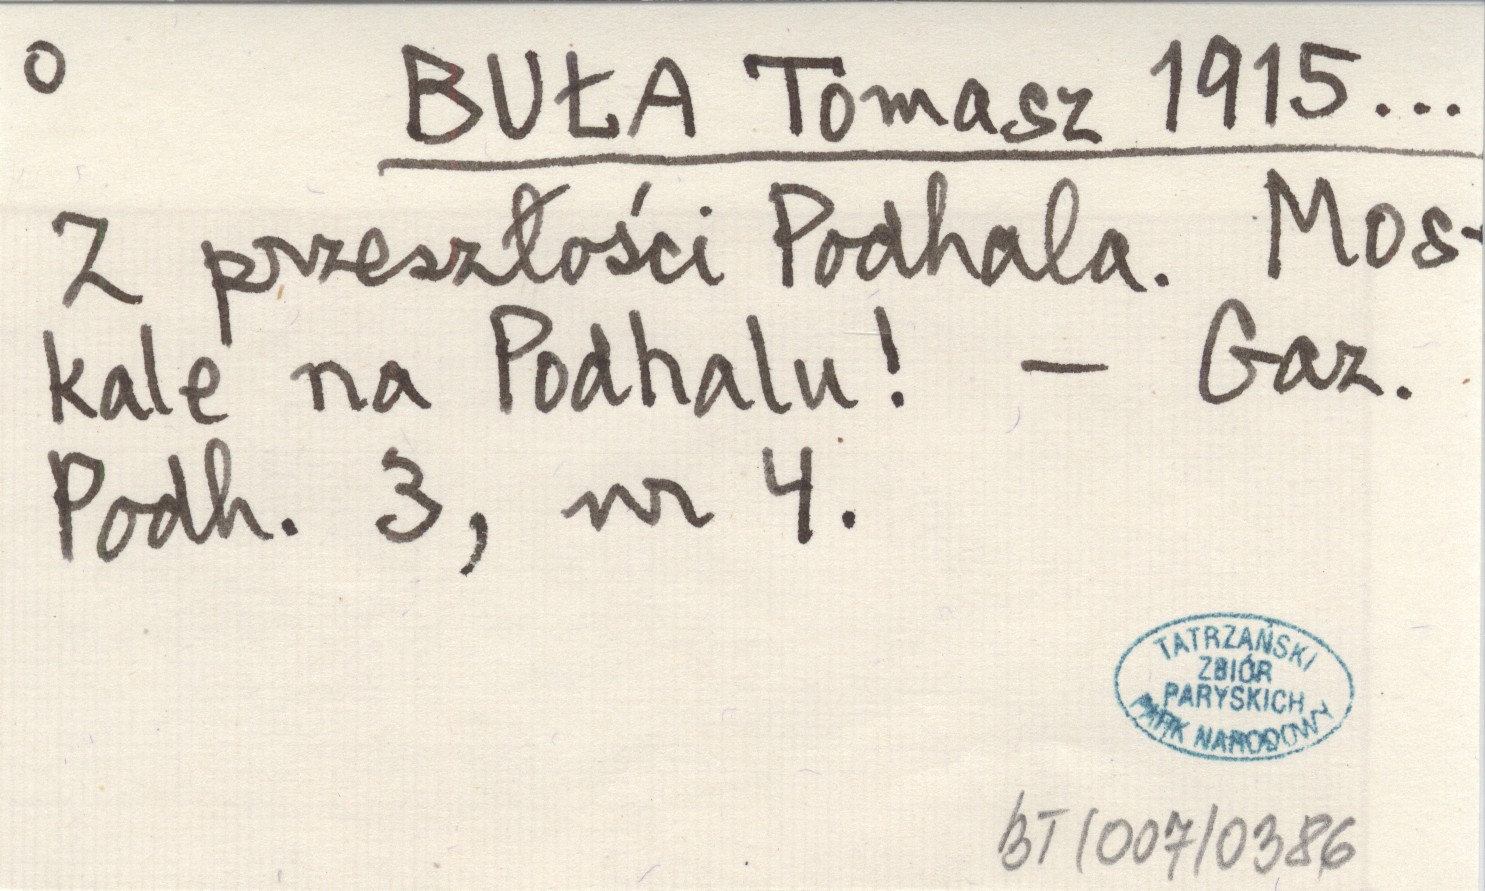 o BUŁA Tomasz 1915...
Z przeszłości Podhala. Mos-
kale na Podhalu! — Gaz.
Podh. 3, nr 4.
TATRZAŃSKI
ZBIÓR
PARYSKICH
PARK NARODOWY
BT/007/0386